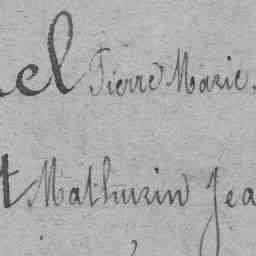 el Pierre Marie.
t Mathurin Jea